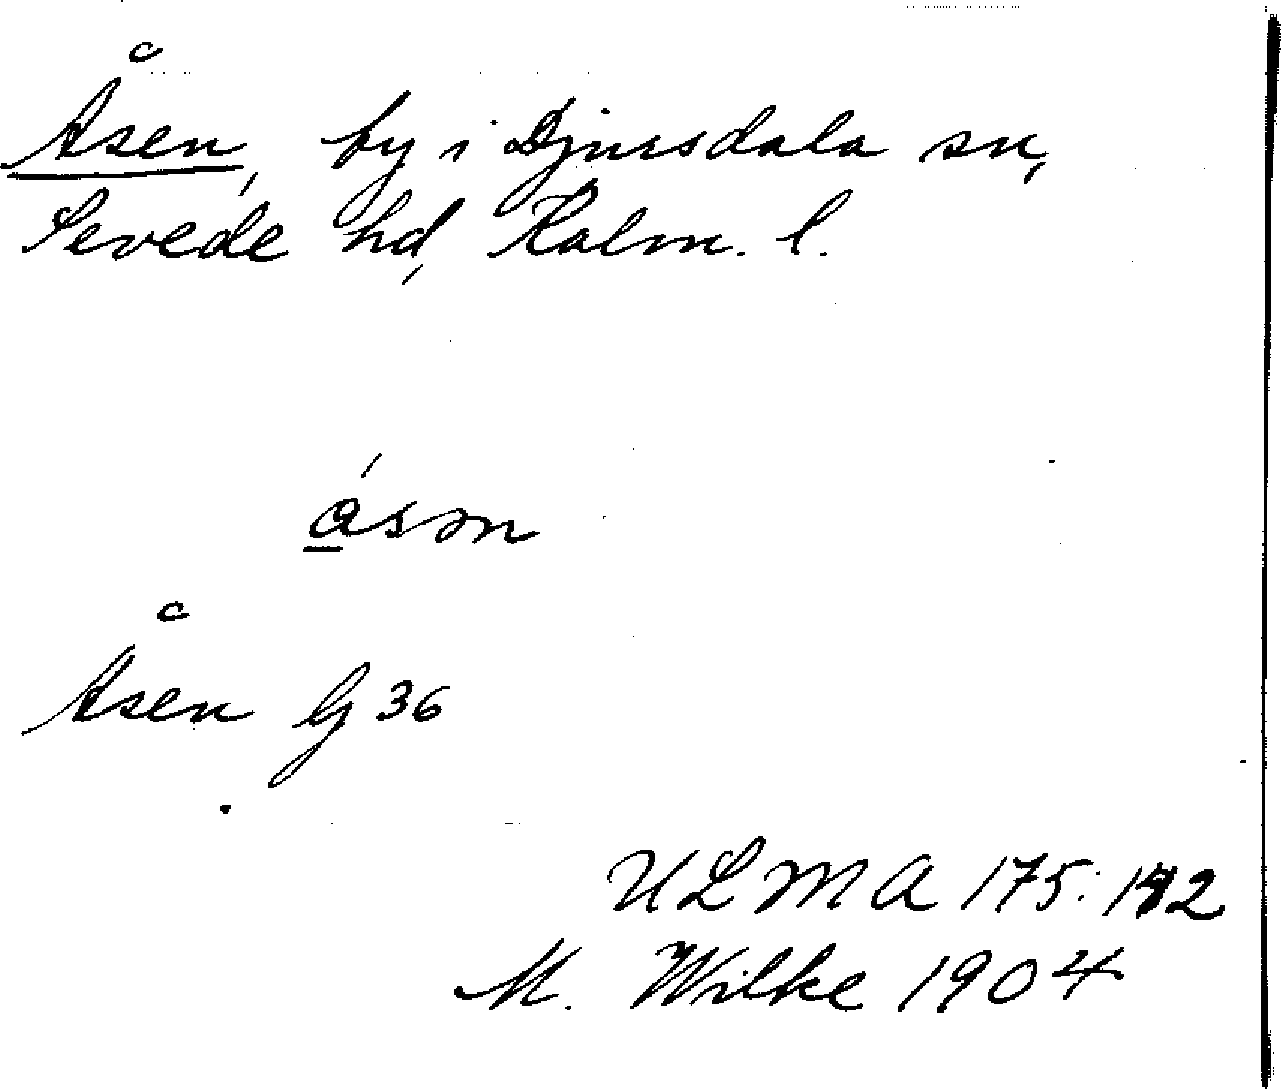 Åsen, by i Djursdala sn,
Sevede hd, Kalm. l.
ásən
Åsen G 36
ULMA 175:142
M. Wilke 1904